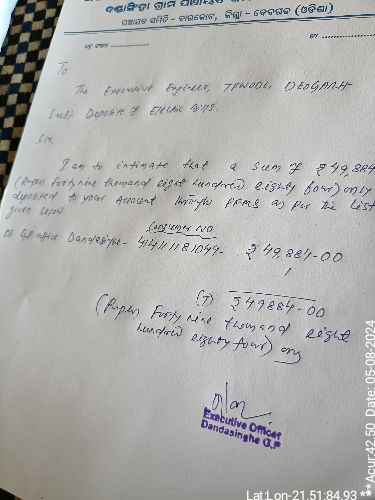 ଦଣ୍ଡାସିଂହା ଗ୍ରାମ ପଞ୍ଚାୟତ
ପଞ୍ଚାୟତ ସମିତି - ବାରକୋଟ, ଜିଲ୍ଲା - ଦେବଗଡ (ଓଡିଶା)
To
The Executive Engineer, TPWODL, DEOGARH
Sub: Deposite of Electric Bills.
Sir,
I am to intimate that a sum of ₹49,884
(Rupees Forty nine thousand eight hundred eighty four) only
deposited to your Account through PFMS as per the List
given below
Consumer NO
GP office Dandasingha - ₹49,884-00
(T) ₹49884-00
(Rupees Forty nine thousand eight
hundred eighty four) only
Executive Officer
Dandasingha G.P
Lat:Lon-21.51:84.93 ***Acur:42.50 Date: 05-08-2024